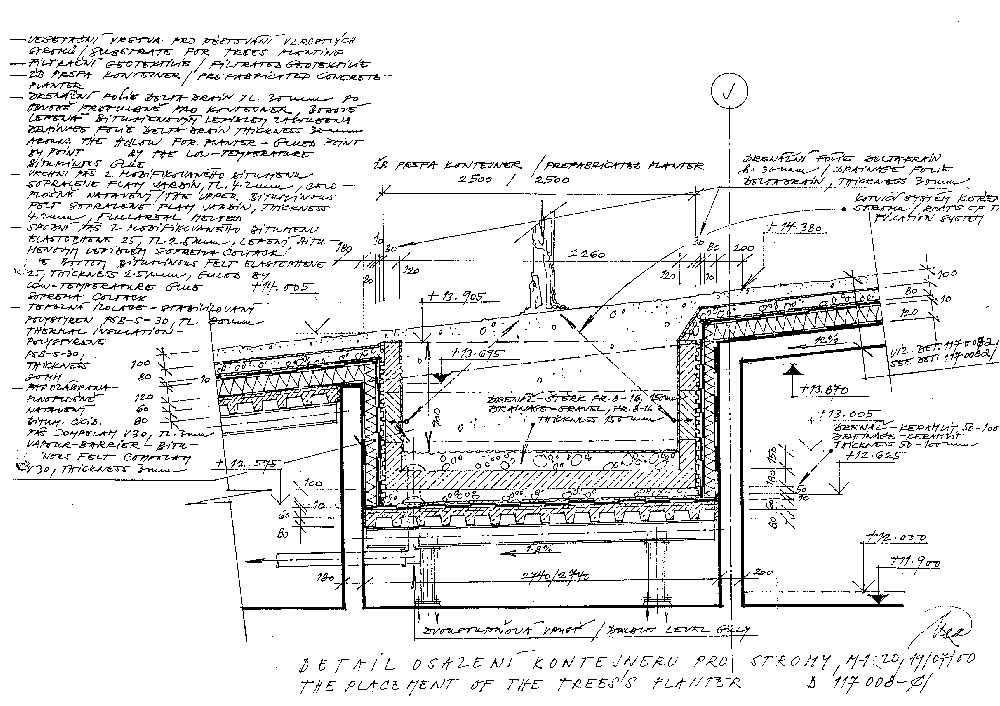 — VEGETAČNÍ VRSTVA PRO PĚSTOVÁNÍ VZROSTLÝCH
STROMŮ / SUBSTRATE FOR TREES PLANTING
— FILTRAČNÍ GEOTEXTILIE / FILTRATED GEOTEXTILE
— ŽB PREFA KONTEJNER / PREFABRICATED CONCRETE
PLANTER
— DRENÁŽNÍ FOLIE DELTA DRAIN TL. 30 mm PO
PRO KONTEJNER, BODOVĚ
LEPENÁ BITUMENOVÝM LEPIDLEM ZA STUDENA
DRAINAGE FOLIE DELTA DRAIN THICKNESS 30 mm
AROUND THE HOLLOW FOR PLANTER - GLUED POINT
BY POINT BY THE LOW-TEMPERATURE
BITUMINOUS GLUE
— VRCHNÍ PÁS Z MODIFIKOVANÉHO BITUMENU
SOPRALENE FLAM JARDIN, TL. 4.2 mm, CELO-
PLOŠNĚ NATAVENÝ / THE UPPER BITUMINOUS
FELT SOPRALENE FLAM JARDIN, THICKNESS
4.2 mm, FULLAREAL MELTED
— SPODNÍ PÁS Z MODIFIKOVANÉHO BITUMENU
ELASTOPHENE 25, TL. 2.5 mm, LEPENÝ BITU-
MENOVÝM LEPIDLEM SOPREMA COLTACK
BOTTOM BITUMINOUS FELT ELASTOPHENE
25, THICKNESS 2.5 mm, GLUED BY
LOW-TEMPERATURE GLUE
SOPREMA COLTACK
— TEPELNÁ IZOLACE - STABILIZOVANÝ
POLYSTYREN PSB-S-30, TL. 80 mm
THERMAL INSULATION -
POLYSTYRENE
PSB-S-30,
THICKNESS
80 MM
— PAROZÁBRANA -
PLNOPLOŠNĚ
NATAVENÝ
BITUM.
PÁS COMPOLAM V30, TL. 3 mm
VAPOUR-BARRIER - BITU-
INOUS FELT COMPOLAM
V30, THICKNESS 3 mm
ŽB PREFA KONTEJNER / PREFABRICATED PLANTER
2500 / 2500
DRENÁŽNÍ FOLIE DELTADRAIN
tl. 30 mm / DRAINAGE FOLIE
DELTADRAIN, THICKNESS 30 mm
KOTVICÍ SYSTÉM KOŘEN
STROMU / ROOTS OF T
FIXATION SYSTEM
+14.380
180
30
80
120
2260
30
80
120
200
+14.005
+13.905
+13.675
700
100
80
10
120
10%
VIZ. DET. 117008-2/
SEE DET. 117008-2/
+13.870
100
80
10
120
60
80
DRENÁŽ - ŠTĚRK FR. 8-16, 150 mm
DRAINAGE - GRAVEL, FR. 8-16
THICKNESS 150 mm
+13.005
DRENÁŽ - KERAMZIT 50-100
DRAINAGE - KERAMZIT
THICKNESS 50-100 mm
+12.625
+12.575
100
10
60
80
50
10
60
80
+12.030
+11.900
1.8%
180
2740/2740
200
DVOUSTUPŇOVÁ VPUSŤ / DOUBLE LEVEL GULLY
DETAIL OSAZENÍ KONTEJNERU PRO STROMY, M 1:20, 19/07/00
THE PLACEMENT OF THE TREES'S PLANTER D 117 008-01